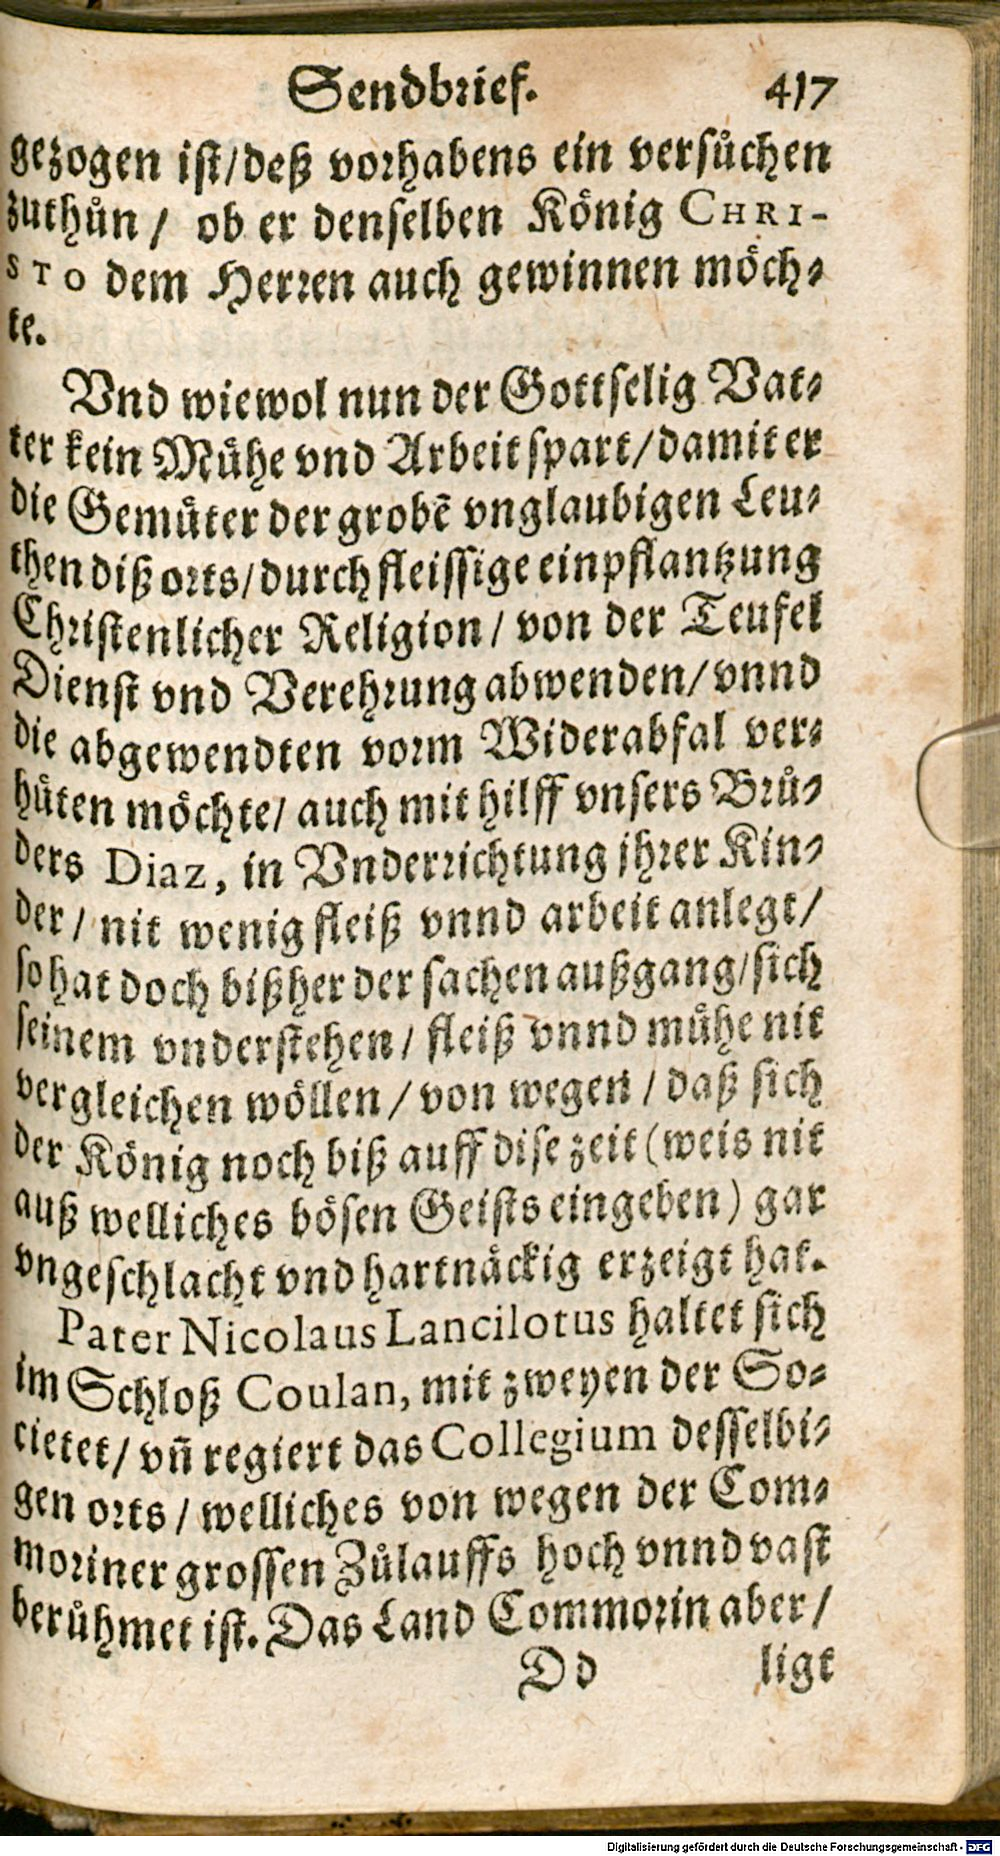 Sendbrief. 417
gezogen ist/deß vorhabens ein versůchen
zuthůn / ob er denselben König CHRI-
STO dem Herren auch gewinnen möch-
te.
Vnd wiewol nun der Gottselig Vat-
ter kein Mühe vnd Arbeit spart/damit er
die Gemüter der grobē vnglaubigen Leu-
then diß orts/durch fleissige einpflantzung
Christenlicher Religion / von der Teufel
Dienst vnd Verehrung abwenden/vnnd
die abgewendten vorm Widerabfal ver-
hüten möchte/ auch mit hilff vnsers Brů-
ders Diaz, in Vnderrichtung jhrer Kin-
der / nit wenig fleiß vnnd arbeit anlegt/
so hat doch bißher der sachen außgang/sich
seinem vnderstehen / fleiß vnnd mühe nit
vergleichen wöllen / von wegen / daß sich
der König noch biß auff dise zeit (weis nit
auß welliches bösen Geists eingeben) gar
vngeschlacht vnd hartnäckig erzeigt hat.
Pater Nicolaus Lancilotus haltet sich
im Schloß Coulan, mit zweyen der So-
cietet/ vñ regiert das Collegium desselbi-
gen orts / welliches von wegen der Com-
moriner grossen Zůlauffs hoch vnnd vast
berůhmet ist. Das Land Commorin aber /
Dd ligt
Digitalisierung gefördert durch die Deutsche Forschungsgemeinschaft - DFG